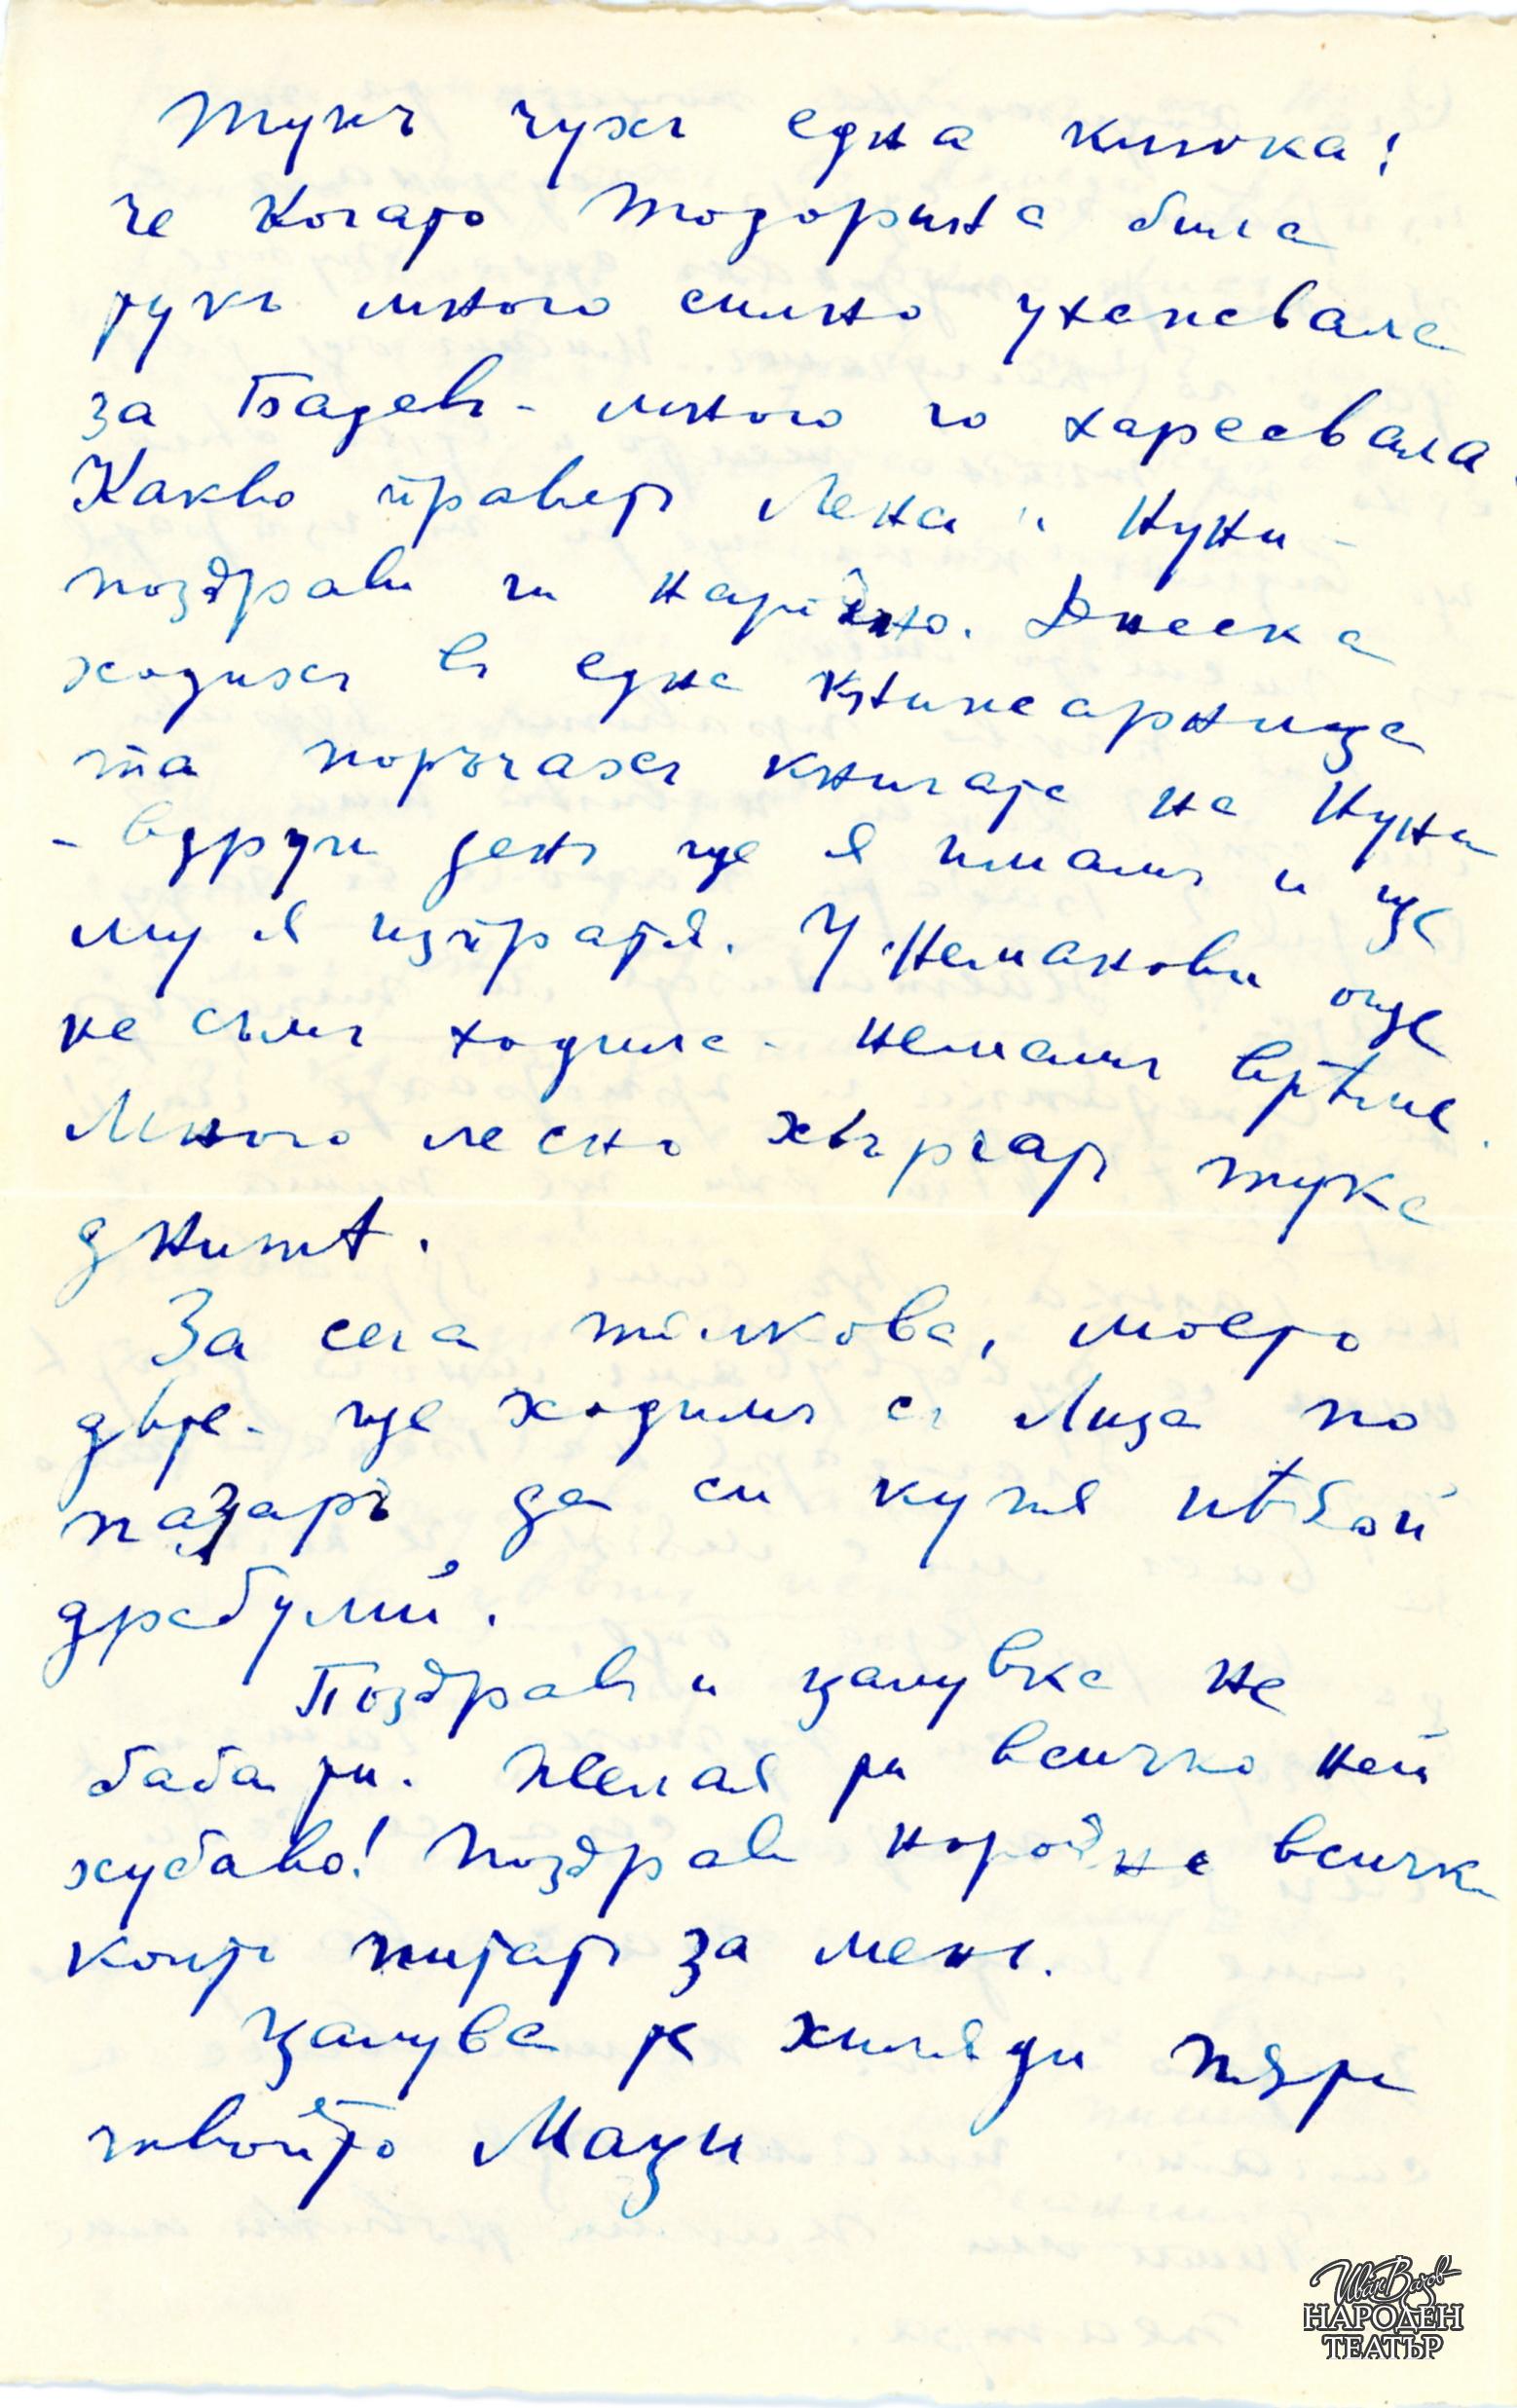 Тукъ чухъ една клюка:
че когато Тодорина била
тукъ много силно ухажвала
за Бадевъ - много го харесвала.
Какво правят Лена и Нуни -
поздрави ги нарочно. Днеска
ходихъ въ една книжарница
та поръчахъ книгата на Нуни
- вдруги день ще я имамъ и ще
му я изпратя. У Неманови още
не съмъ ходила - немамъ врѣме.
Много лесно хвърчат тука
днитѣ.
За сега толкова, моето
дѣте - ще ходимъ съ Лиза по
пазаръ да си купя нѣкои
драбулии.
Поздравъ и цалувка на
баба ти. Желая ти всичко най
хубаво! Поздрави нарочно всички
които питат за мене.
Цалува те хиляди пъти
твоето Маци
Иван Вазов
НАРОДЕН
ТЕАТЪР